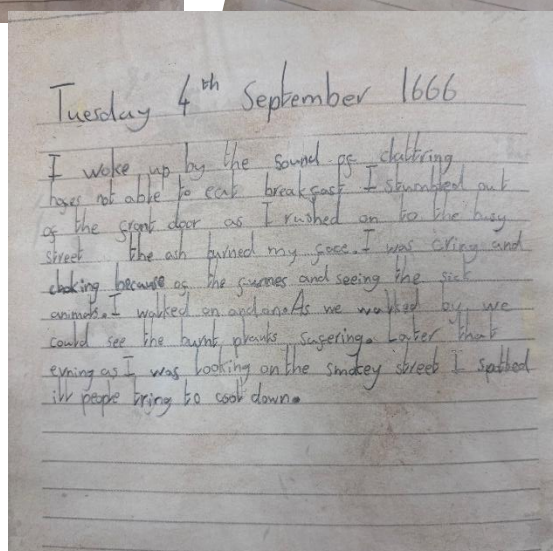 Tuesday 4th September 1666
I woke up by the sound of clattring
hoses not able to eat breakfast I stumbled out
of the front door as I rushed on to the busy
street the ash burned my face. I was criing and
choking because of the fumes and seeing the sick
animals. I walked on and on. As we walked by we
could see the burnt planks sufering. Later that
evning as I was looking on the smokey street I spotted
ill people tring to cool down.